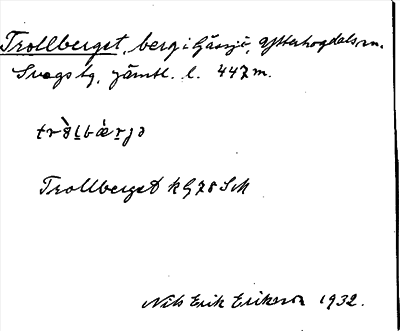 Trollberget, berg i Gåssjö, Ytterhogdals sn.
Svegs tg, Jämtl. l. 447 m.
Trollberget k G 78 SM
Nils Erik Eriksson 1932.